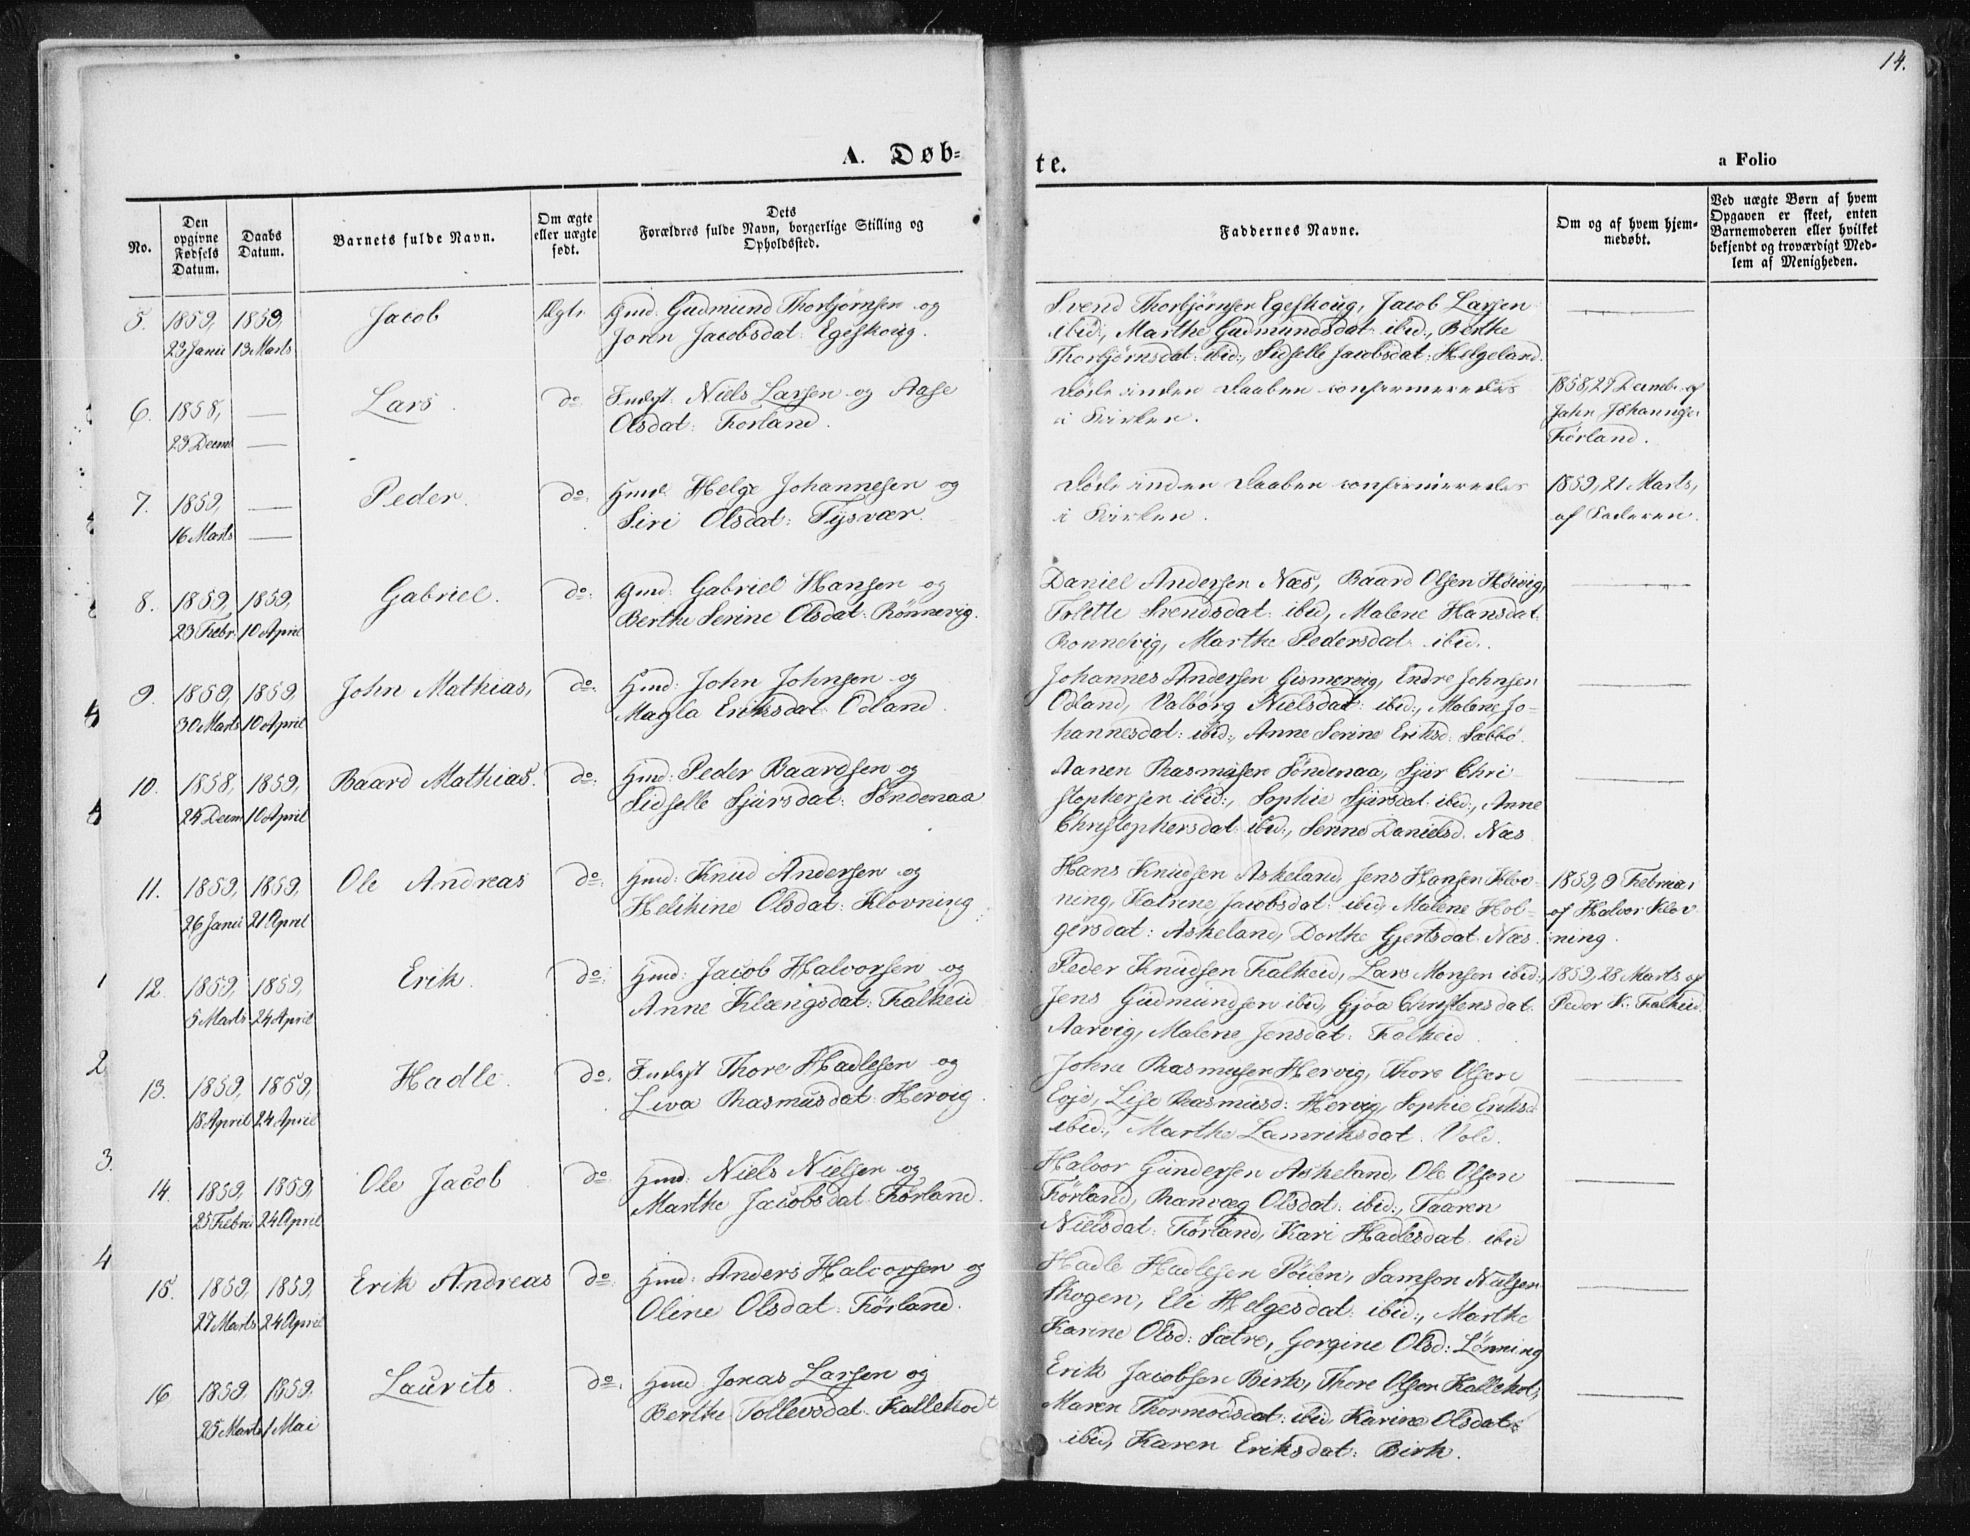 14.
A. Døb-
te.
a Folio
No.
Den opgivne Fødsels Datum.
Daabs Datum.
Barnets fulde Navn.
Om ægte eller uægte født.
Dets Forældres fulde Navn, borgerlige Stilling og Opholdssted.
Faddernes Navne.
Om og af hvem hjemmedøbt.
Ved uægte Børn af hvem Opgaven er skeet, enten Barnemoderen eller hvilket bekjendt og troværdigt Medlem af Menigheden.
5. 1859, 23 Janu 1859, 13 Marts Jacob Ægte
Gmd: Gudmund Thorbjørnsen og
Joren Jacobsdat: Egeskoug.
Svend Thorbjørnsen Egeskoug, Jacob Larsen
ibid:, Marthe Gudmundsdat: ibid:, Berthe
Thorbjørnsdat: ibid:, Sidselle Jacobsdat: Helgeland.
6. 1858, 23 Decmb — Lars. do
Indst Niels Larsen og Aase
Olsdat: Førland.
Døde inden Daaben confirmeredes
i Kirken.
1858, 27 Decmb. af
Jahn Johannes.
Førland.
7. 1859, 16 Marts — Peder. do:
Gmd. Helge Johannesen og
Siri Olsdat: Tysvær.
Døde inden Daaben confirmeredes
i Kirken.
1859, 21 Marts,
af Faderen.
8. 1859, 23 Febr. 1859, 10 April Gabriel. do:
Gmd: Gabriel Hansen og
Berthe Serine Olsdat: Rønnevig.
Daniel Andersen Næs, Baard Olsen Høivig,
Tolette Svendsdat: ibid, Malene Hansdat:
Ronnevig, Marthe Pedersdat ibid.
4
9. 1859, 30 Marts 1859, 10 April John Mathias, do:
Gmd: John Johnsen og
Magla Eriksdat: Odland.
Johannes Andersen Gismervig, Endre Johnsen
Odland, Valborg Nielsdat: ibid:, Malene Jo-
hannesdat: ibid:, Anne Serine Eriksd: Sæbbø.
4
10. 1858, 24 Decm 1859, 10 April Baard Mathias. do:
Gmd: Peder Baardsen og
Sidselle Sjursdat: Søndenaa
Aanen Rasmusen Søndenaa, Sjur Chri-
stophersen ibid:, Sophie Sjursdat: ibid:, Anne
Christophersdat: ibid:, Serine Danielsd. Næs
11. 1859, 26 Janu 1859, 21 April Ole Andreas do:
Gmd: Knud Andersen og
Helikine Olsdat: Klovning
Hans Knudsen Askeland, Jens Hansen Klov-
ning, Katrine Jacobsdat: ibid, Malene Hol-
gersdat: Askeland, Dorthe Gjertsdat Næs.
1859, 9 Februar
af Halvor Klov-
ning.
1
12. 1859, 5 Marts 1859, 24 April Erik. do:
Gmd: Jacob Halvorsen og
Anne Klængsdat: Falkeid
Peder Knudsen Falkeid, Lars Monsen ibid:,
Jens Gudmundsen ibid, Gjøa Christensdat.
Aarvig, Malene Jensdat: Falkeid.
1859, 28 Marts af
Peder K. Falkeid.
2
13. 1859, 18 April 1859, 24 April Hadle. do.
Indst Thore Hadlesen og
Liva Rasmusdat: Hervig.
John Rasmusen Hervig, Thore Olsen
Eoje, Lise Rasmusd: Hervig, Sophie Eriksd:
ibid:, Marthe Lamriksdat. Vold.
3.
14. 1859, 25 Febru 1859, 24 April Ole Jacob do
Gmd: Niels Nielsen og
Marthe Jacobsdat: Førland.
Halvor Gundersen Askeland, Ole Olsen
Førland, Ranvæg Olsdat: ibid:, Taaren
Nielsdat: Førland, Kari Hadlesdat: ibid
4
15. 1859, 27 Marts 1859, 24 April Erik Andreas do:
Gmd: Anders Halvorsen og
Oline Olsdat: Førland.
Hadle Hadlesen Pøilen, Samson Nielsen
Skogen, Eli Helgesdat: ibid:, Marthe
Karine Olsd: Sætre, Gorgine Olsd: Lønning
16 1859. 25 Marts 1859. 1 Mai Laurits. do.
Gmd: Jonas Larsen og
Berthe Tollevsdat Kallekodt
Erik Jacobsen Birk, Thore Olsen Kallekot,
Maren Thormodsdat: ibid, Karine Olsdat:
ibid, Karen Eriksdat: Birk.